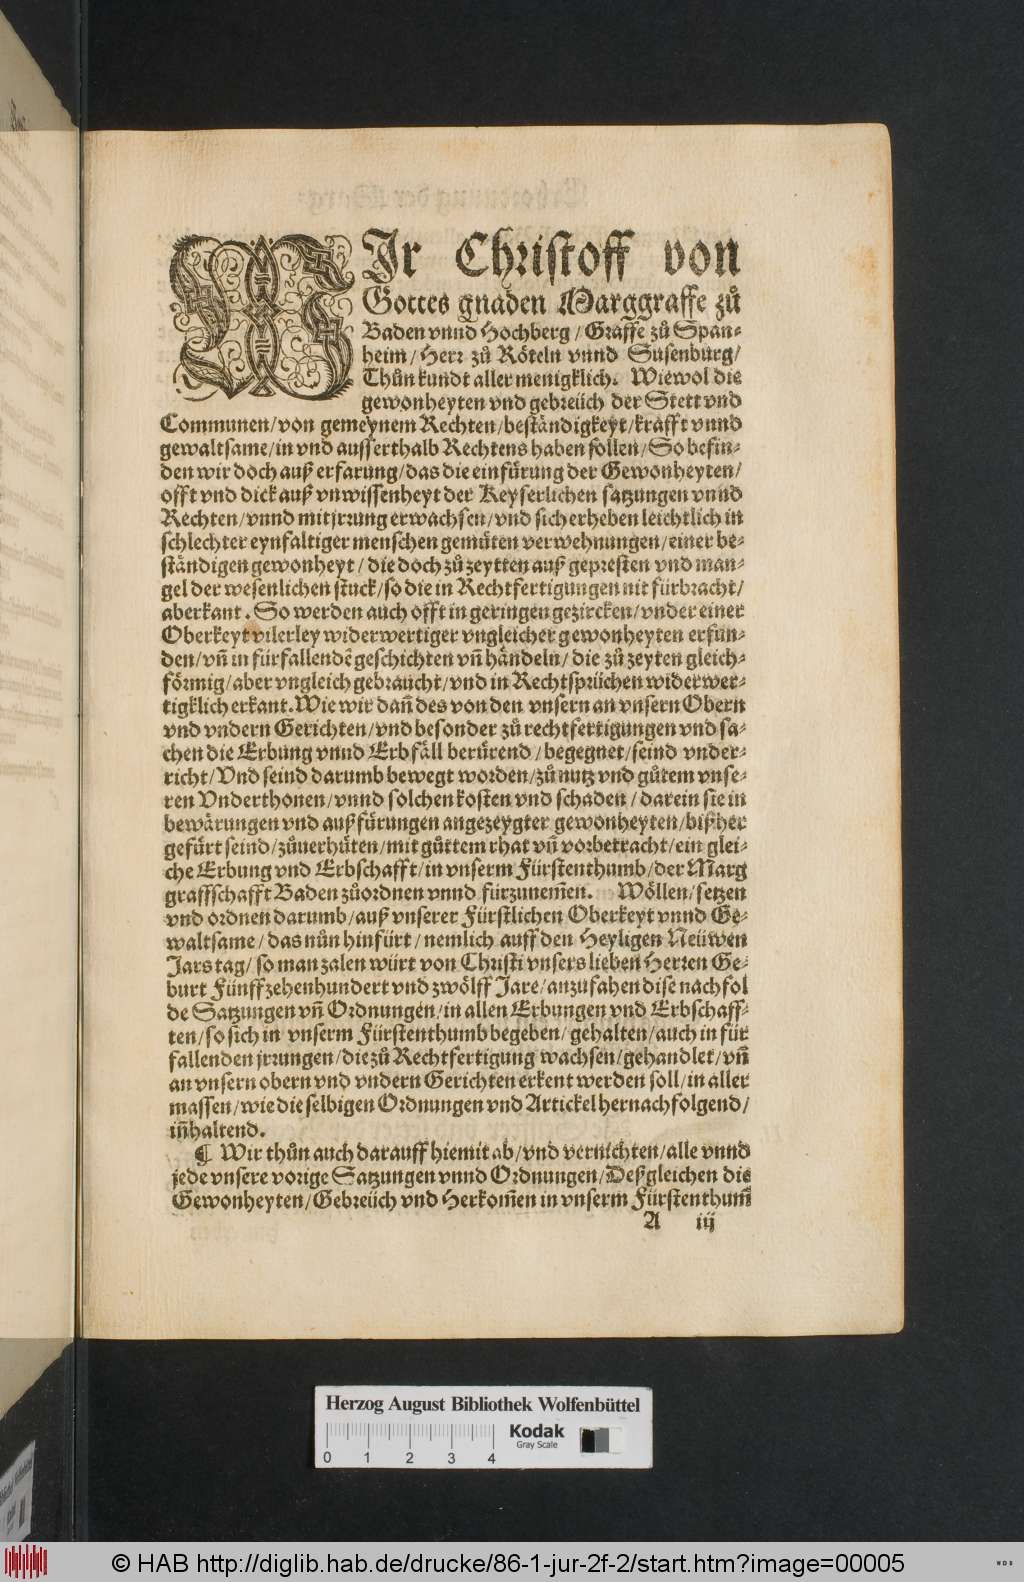 WIr Christoff von
Gottes gnaden Marggraffe zů
Baden vnnd Hochberg / Graffe zů Span⸗
heim / Herr zů Röteln vnnd Susenburg /
Thůn kundt aller menigklich. Wiewol die
gewonheyten vnd gebreüch der Stett vnd
Communen / von gemeynem Rechten / beständigkeyt / krafft vnnd
gewaltsame / in vnd ausserthalb Rechtens haben sollen / So befin⸗
den wir doch auß erfarung / das die einfürung der Gewonheyten /
offt vnd dick auß vnwissenheyt der Keyserlichen satzungen vnnd
Rechten / vnnd mit jrrung erwachsen / vnd sich erheben leichtlich in
schlechter eynfaltiger menschen gemüten verwehnungen / einer be⸗
ständigen gewonheyt / die doch zů zeytten auß gepresten vnd man⸗
gel der wesenlichen stuck / so die in Rechtfertigungen nit fürbracht /
aberkant. So werden auch offt in geringen gezircken / vnder einer
Oberkeyt vilerley widerwertiger vngleicher gewonheyten erfun⸗
den / vñ in fürfallendẽ geschichten vñ händeln / die zů zeyten gleich⸗
förmig / aber vngleich gebraucht / vnd in Rechtsprüchen widerwer⸗
tigklich erkant. Wie wir dañ des von den vnsern an vnsern Obern
vnd vndern Gerichten / vnd besonder zů rechtfertigungen vnd sa⸗
chen die Erbung vnnd Erbfäll berürend / begegnet / seind vnder⸗
richt / Vnd seind darumb bewegt worden / zů nutz vnd gůtem vnse⸗
ren Vnderthonen / vnnd solchen kosten vnd schaden / darein sie in
bewärungen vnd außfürungen angezeygter gewonheyten / bißher
gefürt seind / zůuerhüten / mit gůttem rhat vñ vorbetracht / ein glei⸗
che Erbung vnd Erbschafft / in vnserm Fürstenthumb / der Marg
graffschafft Baden zůordnen vnnd fürzunem̃en. Wöllen / setzen
vnd ordnen darumb / auß vnserer Fürstlichen Oberkeyt vnnd Ge⸗
waltsame / das nůn hinfürt / nemlich auff den Heyligen Neüwen
Jars tag / so man zalen würt von Christi vnsers lieben Herren Ge⸗
burt Fünffzehenhundert vnd zwölff Jare / anzufahen dise nachfol
de Satzungen vñ Ordnungen / in allen Erbungen vnd Erbschaff⸗
ten / so sich in vnserm Fürstenthumb begeben / gehalten / auch in für
fallenden jrrungen / die zů Rechtfertigung wachsen / gehandlet / vñ
an vnsern obern vnd vndern Gerichten erkent werden soll / in aller
massen / wie die selbigen Ordnungen vnd Artickel hernach folgend /
iñhaltend.
¶ Wir thůn auch darauff hiemit ab / vnd vernichten / alle vnnd
jede vnsere vorige Satzungen vnnd Ordnungen / Deßgleichen die
Gewonheyten / Gebreüch vnd Herkom̃en in vnserm Fürstenthum̃
A iij
Herzog August Bibliothek Wolfenbüttel
0 1 2 3 4
Kodak
Gray Scale
© HAB http://diglib.hab.de/drucke/86-1-jur-2f-2/start.htm?image=00005
WDB